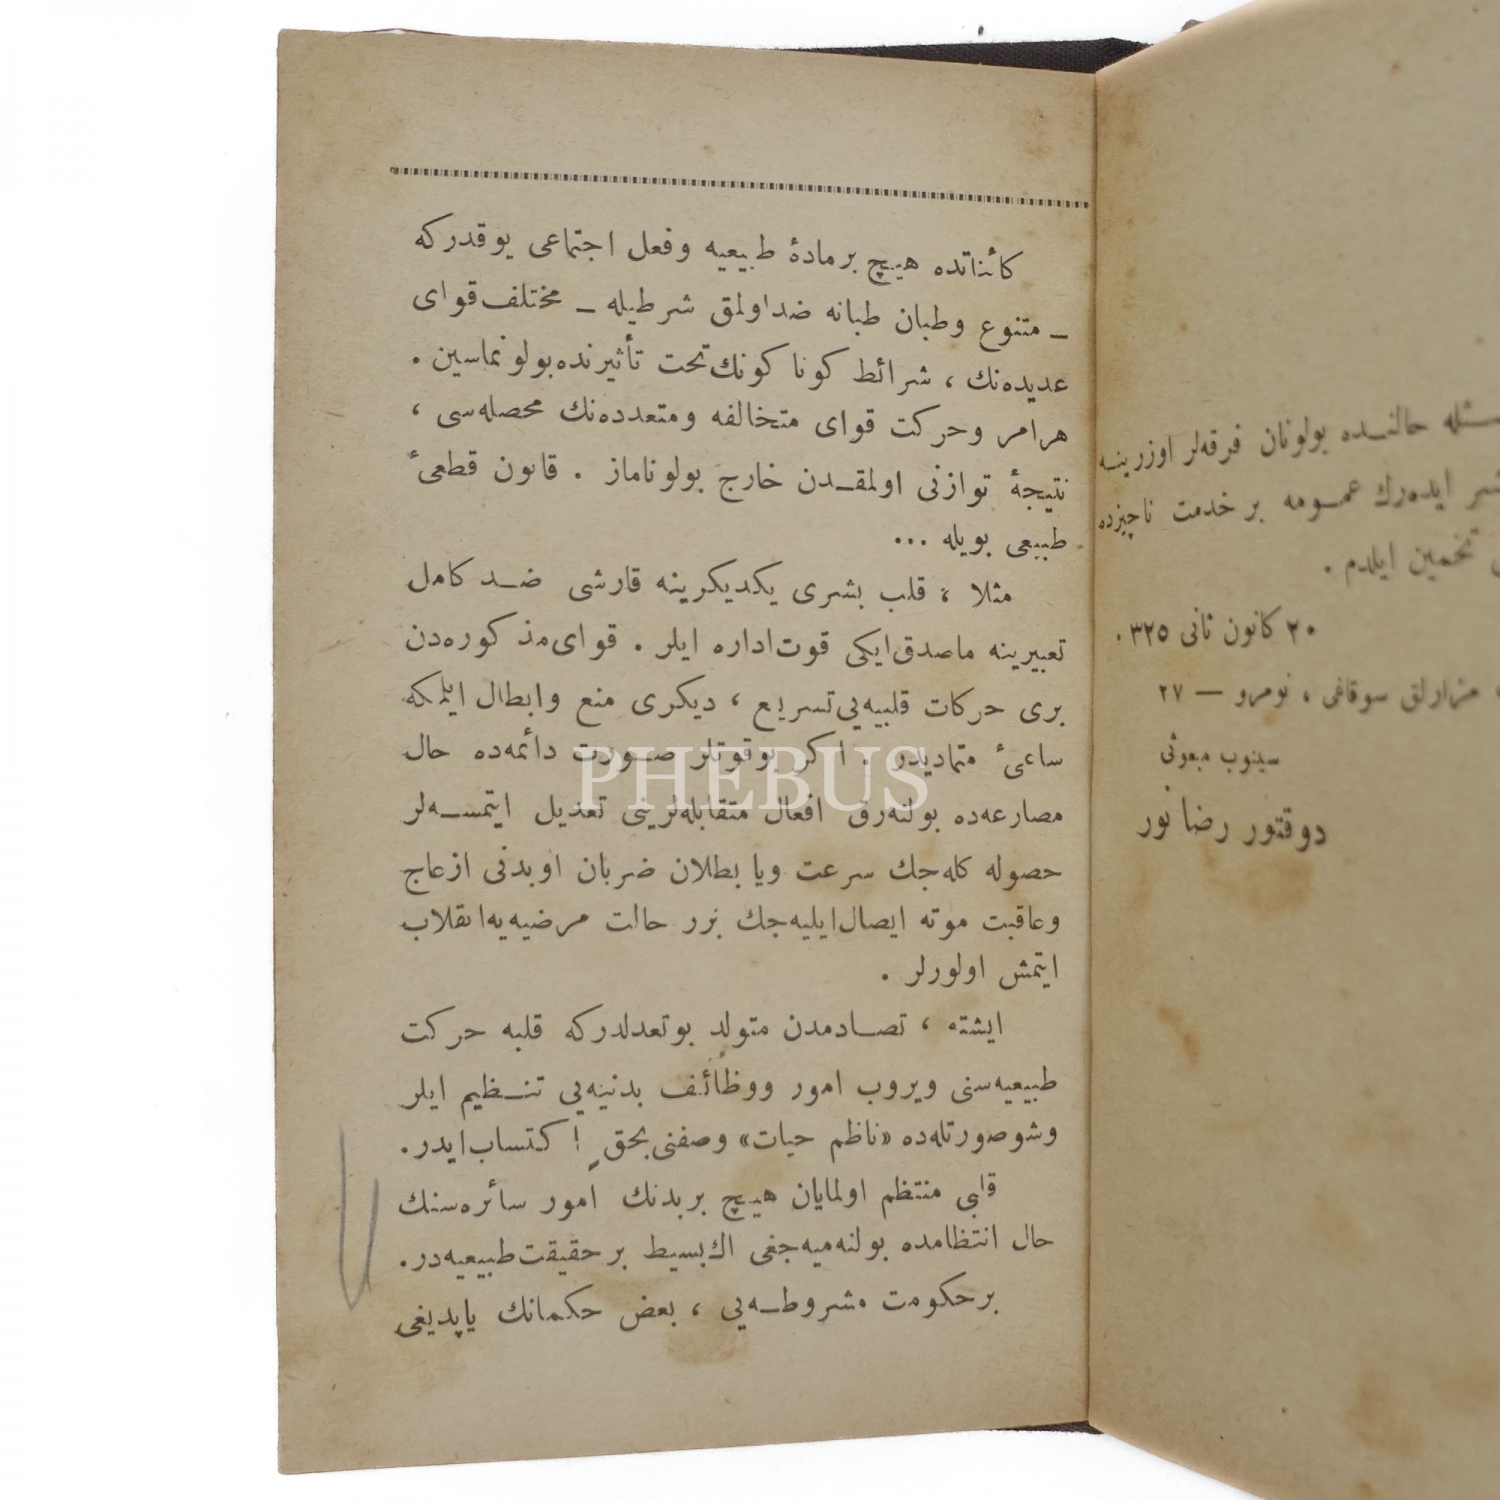 ـئله حالنـده بولونان فرقه‌لر اوزرينه
ـشر ايده‌رك عمـومه بر خدمت ناچيزده
تخمين ايلدم .
٢٠ كانون ثانى ٣٢٥.
مزارلق سوقاغى ، نومرو — ٢٧
سينوب مبعوثى
دوقتور رضا نور
كائناتده هيچ بر مادهٔ طبيعيه وفعل اجتماعى يوقدركه
ـ متنوع وطبان طبانه ضد اولمق شرطيله ـ مختلف قواى
عديده‌نك ، شرائط كونا كونك تحت تأثيرنده بولونماسين .
هر امر وحركت قواى متخالفه ومتعدده‌نك محصله‌سى ،
نتيجهٔ توازنى اولمقـدن خارج بولوناماز . قانون قطعىٔ
طبيعى بويله ...
مثلا ، قلب بشرى يكديكرينه قارشى ضـد كامل
تعبيرينه ماصدق ايكى قوت اداره ايلر . قواى مذكوره‌دن
برى حركات قلبيه‌يى تسريع ، ديكرى منع وابطال ايلمكه
ساعىٔ متماديدر . اكر بو قوتلر صـورت دائمه‌ده حال
مصارعه‌ده بولنه‌رق افعال متقابله‌لرينى تعديل ايتمسـه‌لر
حصوله كله‌جك سرعت ويا بطلان ضربان او بدنى ازعاج
وعاقبت موته ايصال ايليه‌جك برر حالت مرضيه‌يه انقلاب
ايتمش اولورلر .
ايشته ، تصـادمدن متولد بو تعدلدركه قلبه حركت
طبيعيه‌سنى ويروب امور ووظائف بدنيه‌يى تنـظيم ايلر
وشو صورتله‌ده «ناظم حيات» وصفنى بحقٍ اكتساب ايدر.
قلبى منتظم اولمايان هيچ بر بدنك امور سائره‌سنك
حال انتظامده بولنه‌ميه‌جغى اك بسيط بر حقيقت طبيعيه‌در.
بر حكومت مشروطـه‌يى ، بعض حكمانك ياپديغى
PHEBUS